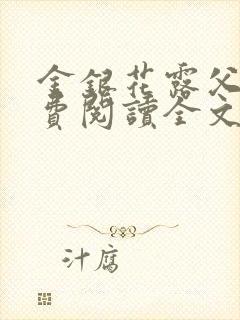 金銀花露父
費閱讀全文
汁腐